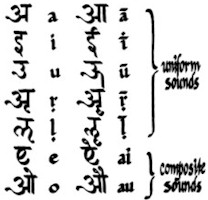 अ a आ ā
इ i ई ī
उ u ऊ ū
ऋ ṛ ॠ ṝ
uniform
sounds
ए e ऐ ai
ओ o औ au
composite
sounds